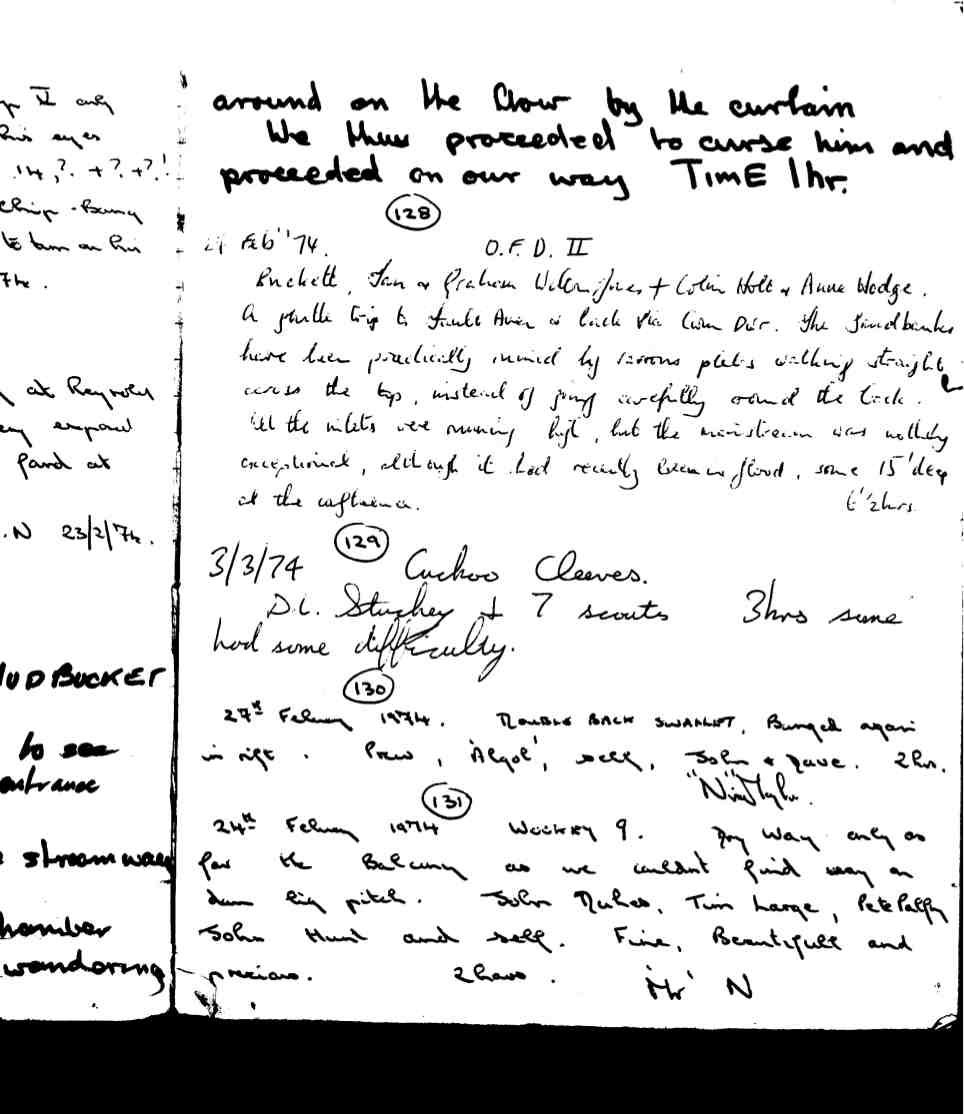 p V only
his eyes
14,?. +?.+?!
to turn on his
74.
at Reynolds
Pand at
.N 23/2/74.
MUDBUCKET
to see
entrance
streamway
hamber
wandering
around on the floor by the curtain
We thus proceeded to curse him and
proceeded on our way TimE 1hr.
128
Feb" 74. O.F.D. II
Buckett, Jan & Graham Wilton-Jones + Colin Holt & Anne Wedge.
A gentle trip to Fault Aven & back via Cwm Dwr. The Sandbanks
have been practically ruined by moronic pletes walking straight
across the top, instead of going carefully round the back.
All the inlets were running high, but the mainstream was nothing
exceptional, although it had recently been in flood, some 15' deep
at the confluence. 6½hrs.
129
3/3/74 Cuckoo Cleeves.
D.L. Stuckey + 7 scouts 3hrs some
had some difficulty.
130
27th February 1974. ROUBLE BACK SWALLET, Banged again
in rift. Prew, 'Algol', self, John & Dave. 2hr.
131
24th February 1974 WOOKEY 9. Dry Way only as
far the Balcony as we couldn't find way on
down big pitch. John Dukes, Tim Large, Pete Palfry
John Hunt and self. Fine, Beautifull and
precious. 2hours. 'Mr' N